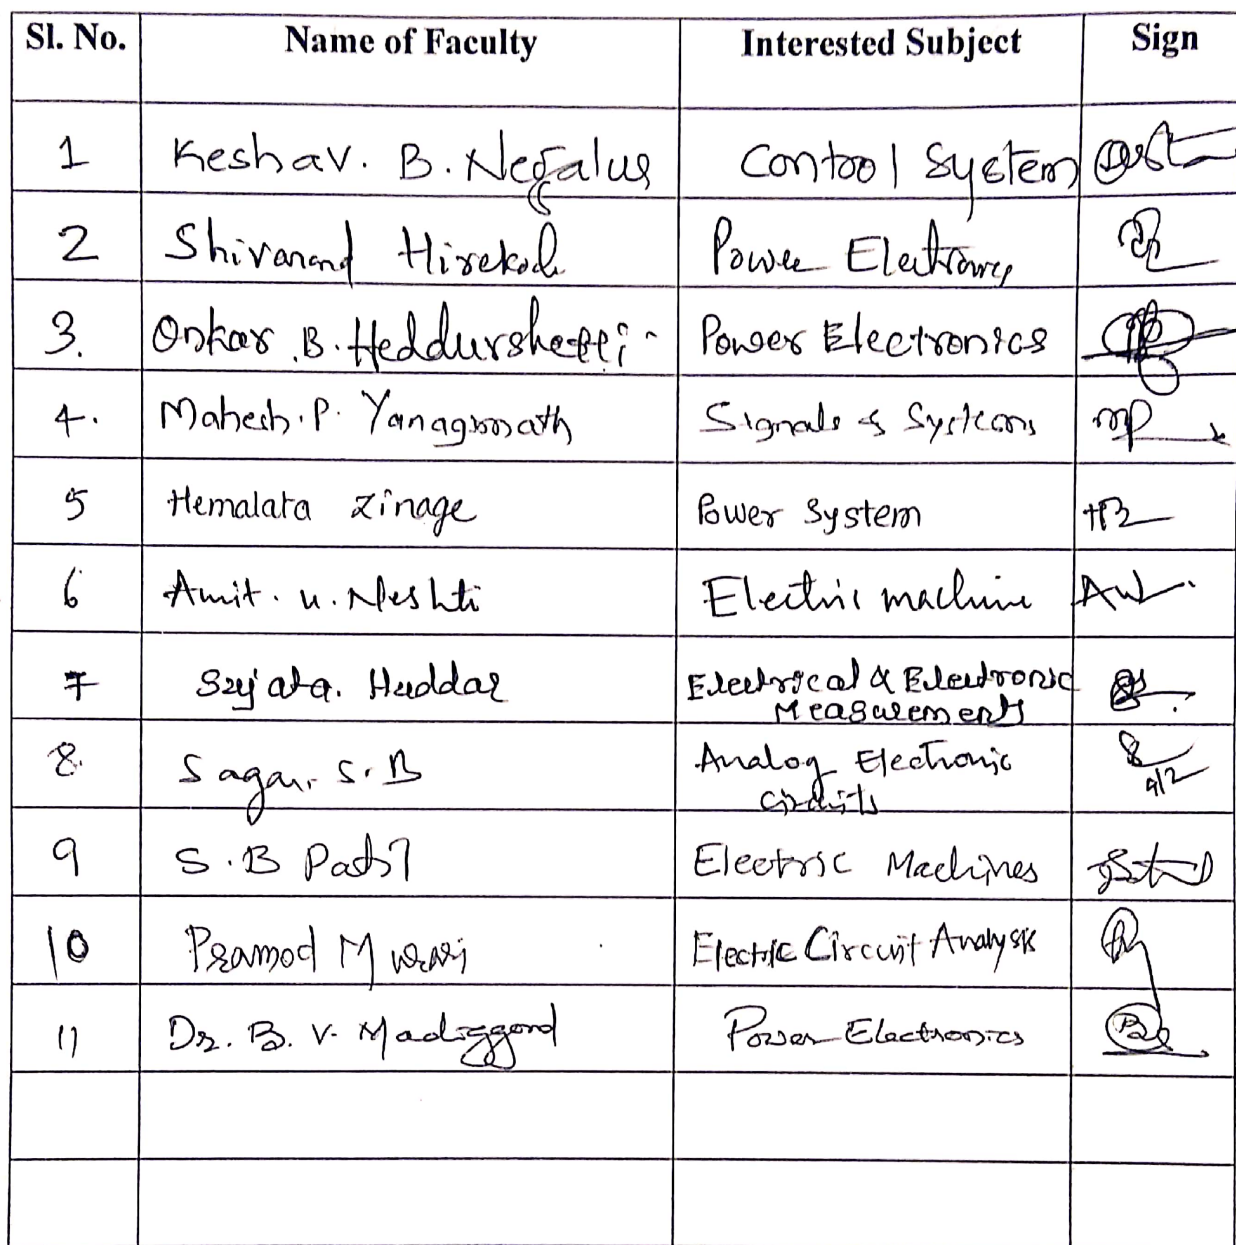 Sl. No. Name of Faculty Interested Subject Sign
1 Keshav. B. Negalur Control System
2 Shivanand Hirekodi Power Electronics
3. Onkar .B. Heddurshetti Power Electronics
4. Mahesh. P. Yanagimath Signals & Systems MP
5 Hemalata Zinage Power System HZ
6 Amit. U. Neshti Electric machine
7 Sujata. Huddar Electrical & Electronic
Measurements
8. Sagar. S. B Analog Electronic
Circuits
9 S. B Patil Electric Machines
10 Pramod Murari Electric Circuit Analysis
11 Dr. B. V. Madiggond Power Electronics